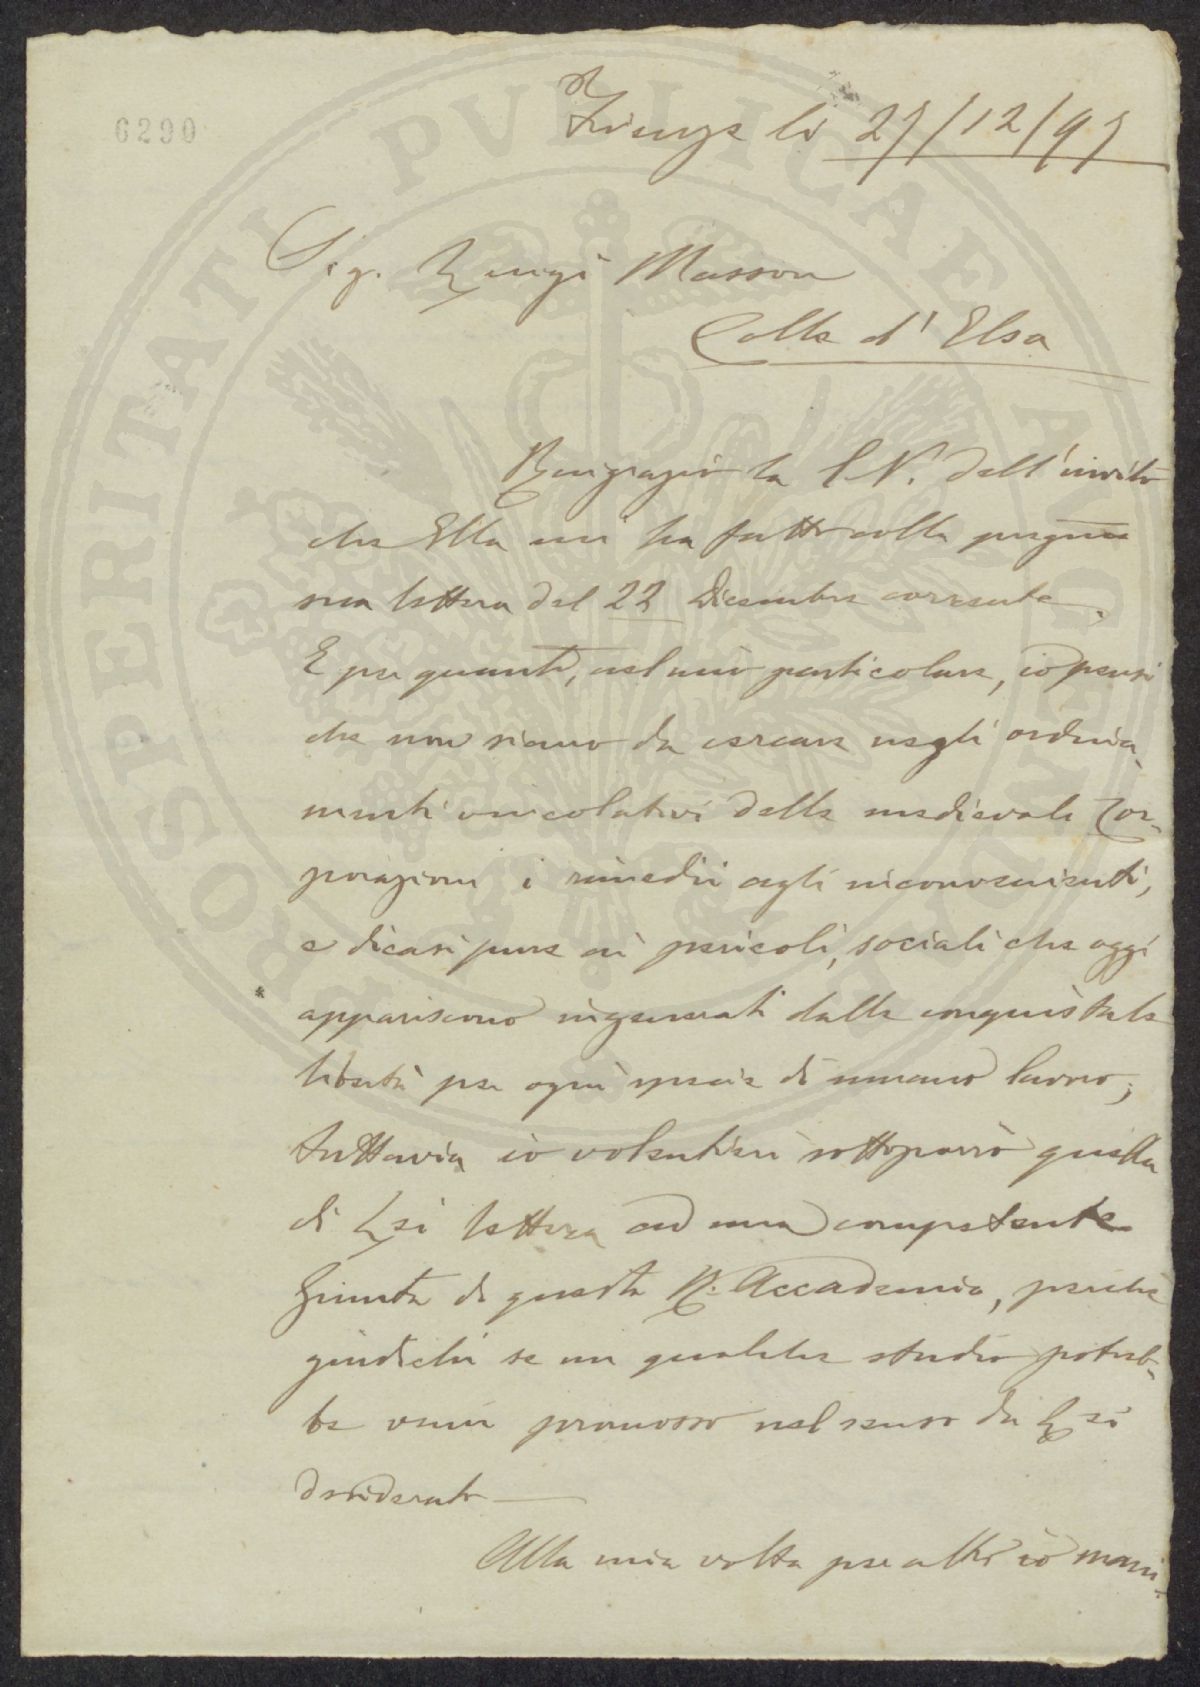 6290
Firenze li 27/12/97
Sig. Luigi Masson
Colle d'Elsa
Ringrazio la S.V. dell'invito
che Ella mi ha fatto colla pregma
sua lettera del 22 Dicembre corrente.
E per quanto, nel mio particolare, io pensi
che non siano da cercare negli ordina-
menti vincolativi delle medievali Cor-
porazioni i rimedii agli inconvenienti,
e dicasi pure ai pericoli, sociali che oggi
appariscono ingenerati dalla conquistata
libertà per ogni specie di umano lavoro;
tuttavia io volentieri sottoporrò quella
di Lei lettera ad una competente
Giunta di questa R. Accademia, perché
giudichi se un qualche studio potreb-
be venir promosso nel senso da Lei
desiderato —
Alla mia volta per altro io mani-
PROSPERITATI PVBLICAE AVGENDAE